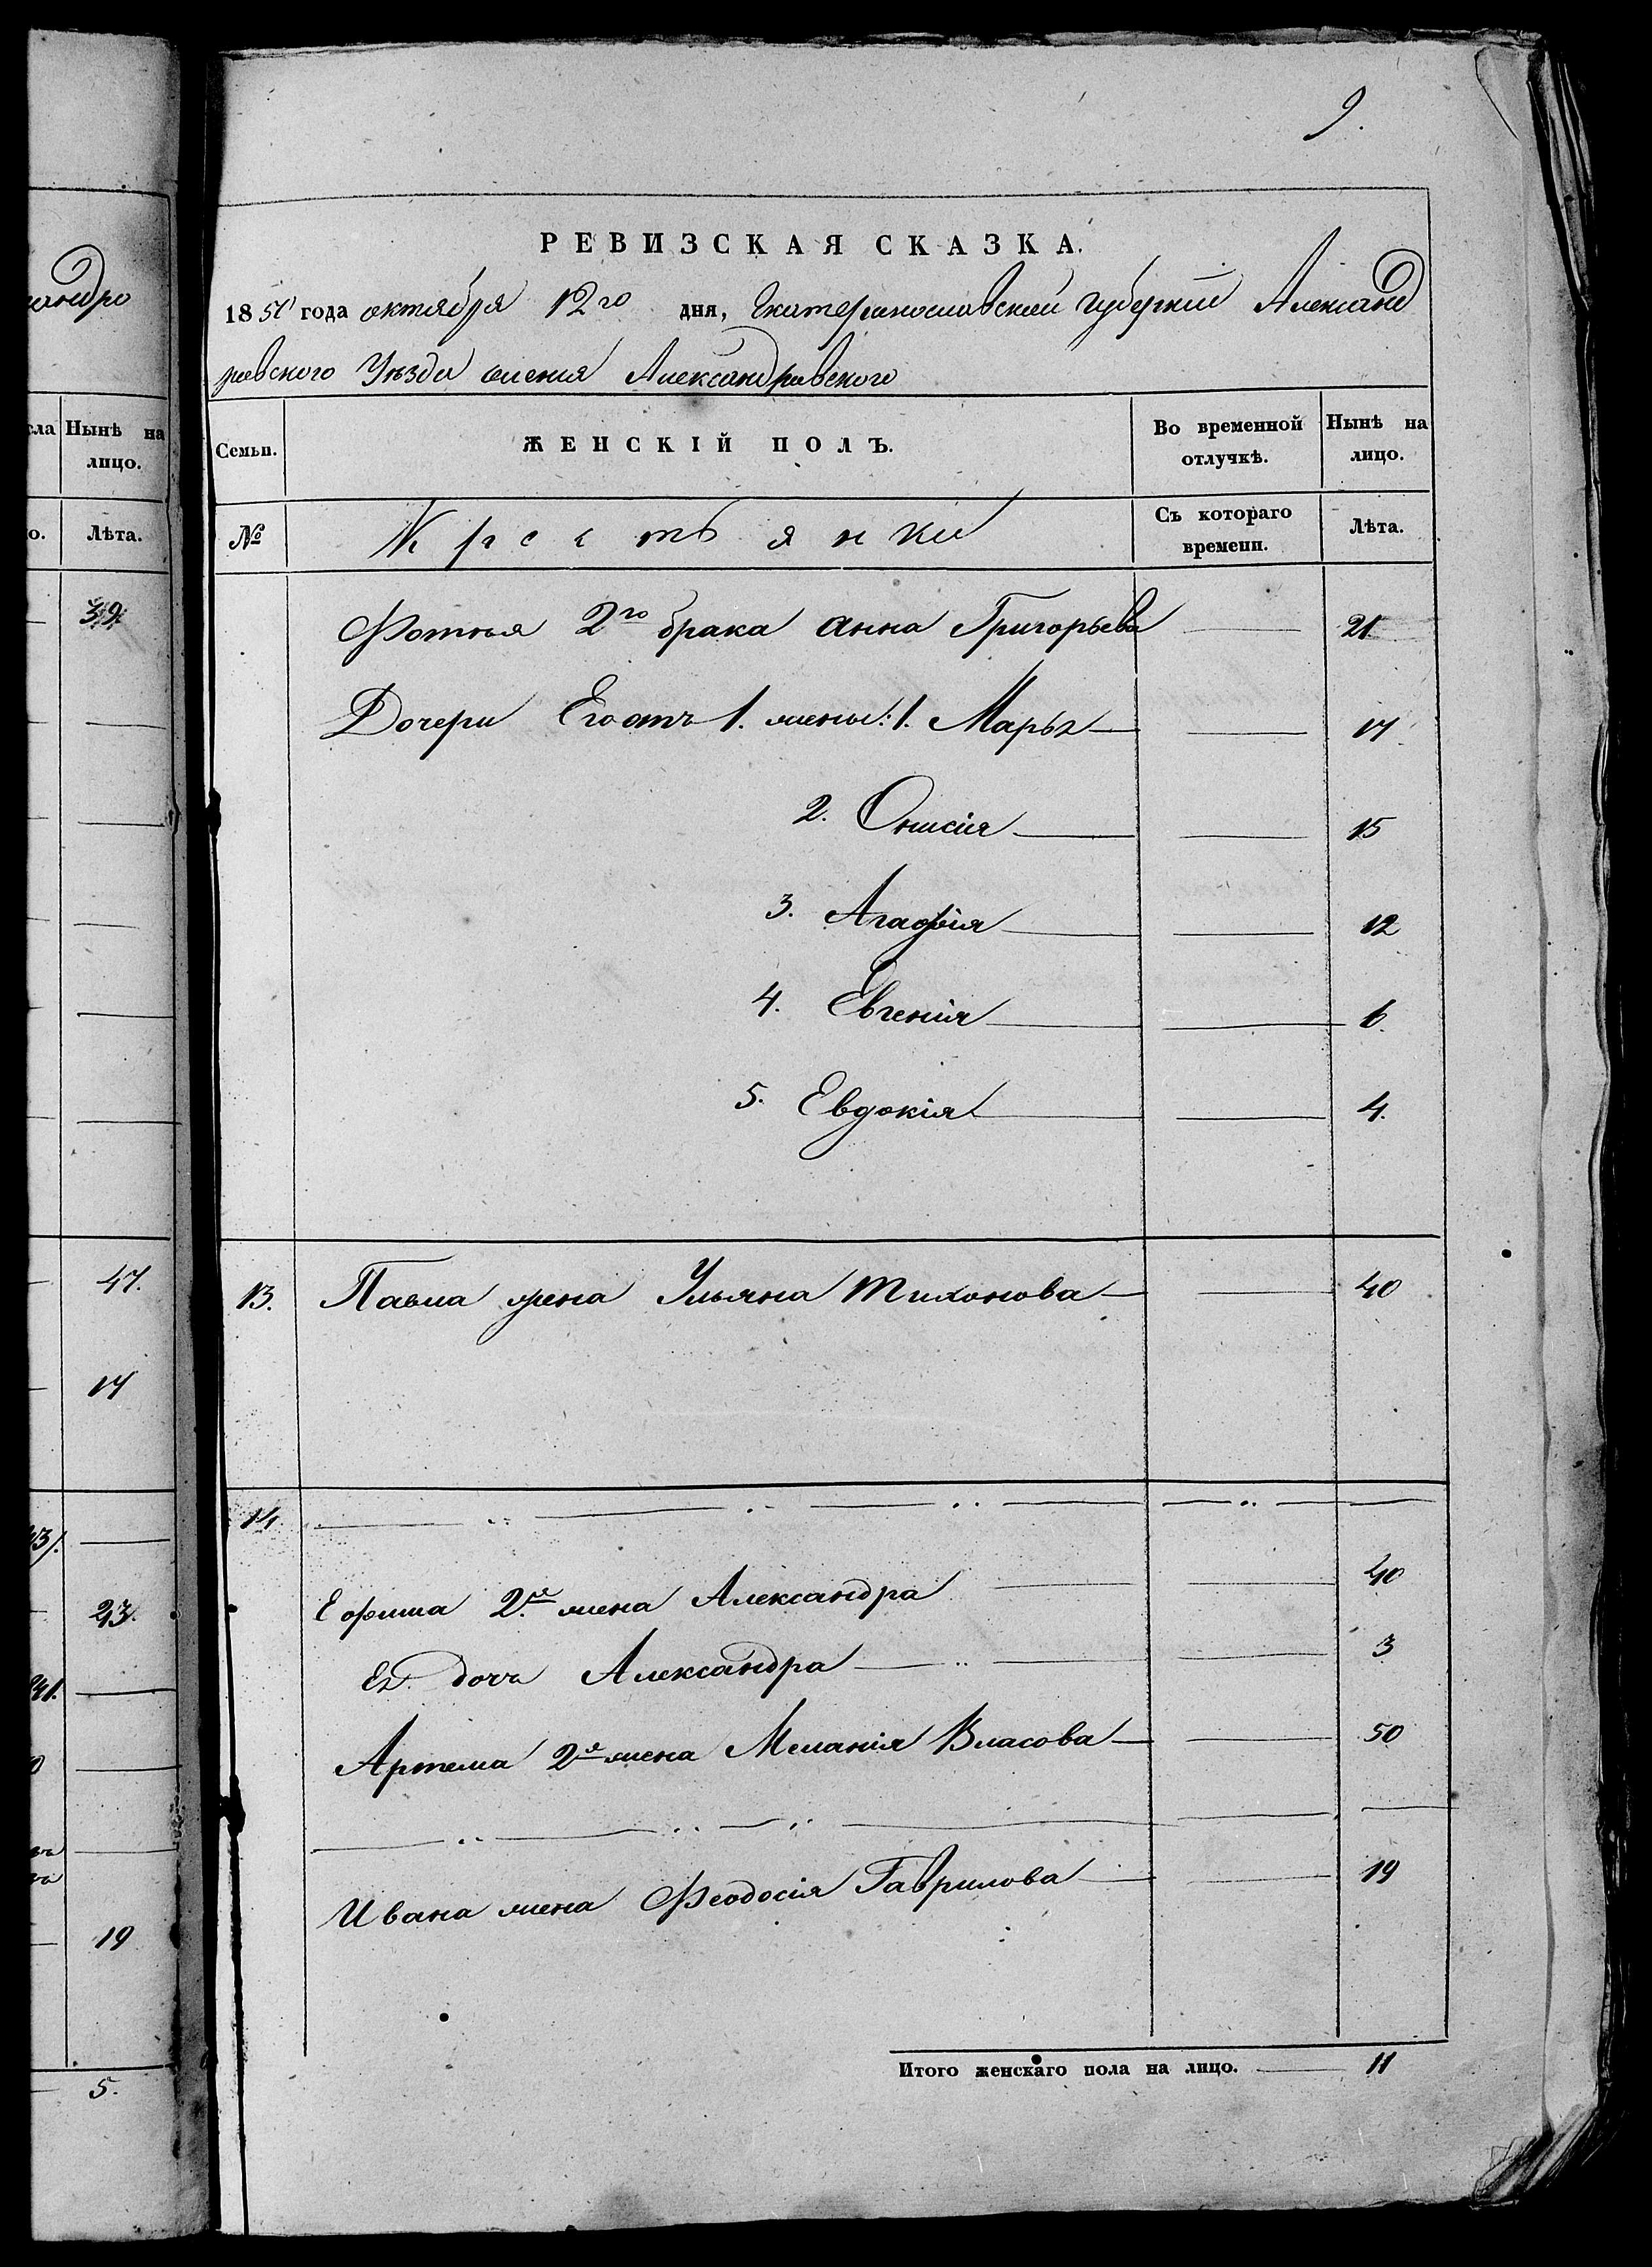 андро
сла Нынѣ на
лицо.
о. Лѣта.
39
47.
17
23.
19
5.
9.
РЕВИЗСКАЯ СКАЗКА.
1850 года октября 12го дня, Екатеринославской губерніи Александ
ровского Уѣзда имения Александровского
Семьи. ЖЕНСКІЙ ПОЛЪ. Во временной отлучкѣ. Нынѣ на лицо.
№ Крестьянки Съ котораго времени. Лѣта.
Фотия 2го брака Анна Григорьева 21
Дочери Его отъ 1. жены: 1. Марья 17
2. Онисія 15
3. Агафія 12
4. Евгенія 6.
5. Евдокія 4.
13. Павла жена Ульяна Тихонова 40
14
Ефима 2я жена Александра 40
Ея дочь Александра 3
Артема 2я жена Меланія Власова 50
Ивана жена Феодосія Гаврилова 19
Итого женскаго пола на лицо. 11